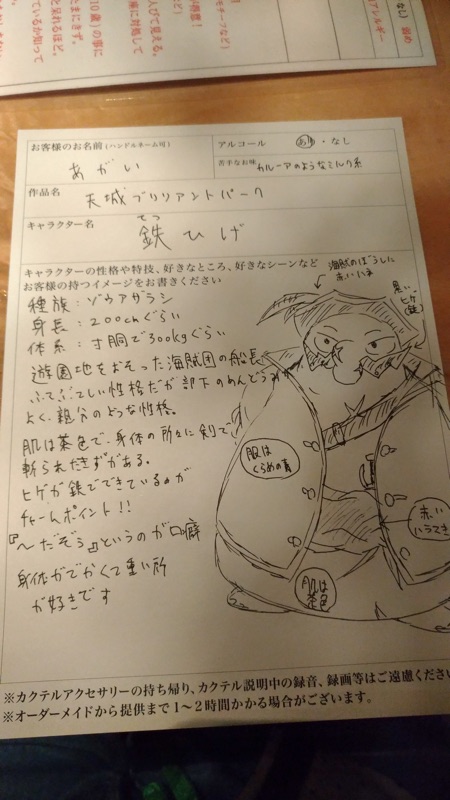 (なし) 弱め
アレルギー
お客様のお名前(ハンドルネーム可)
あがい
アルコール
あり・なし
苦手なお味
カルーアのようなミルク系
作品名
天城ブリリアントパーク
キャラクター名
てつ
鉄ひげ
キャラクターの性格や特技、好きなところ、好きなシーンなど
お客様の持つイメージをお書きください
種族:ゾウアザラシ
身長:200cmぐらい
体系:寸胴で300kgぐらい
遊園地をおそった海賊団の船長
ふてぶてしい性格だが部下のめんどうみ
よく、親分のような性格。
肌は茶色で、身体の所々に剣で
斬られたきずがある。
ヒゲが鉄でできているのが
チャームポイント!!
『~だぞう』というのが口癖
身体がでかくて重い所
が好きです
海賊のぼうしに
赤いハネ
黒い
ヒゲ
(鉄)
服は
くらめの青
赤い
ハラまき
肌は
茶色
※カクテルアクセサリーの持ち帰り、カクテル説明中の録音、録画等はご遠慮くださ
※オーダーメイドから提供まで1~2時間かかる場合がございます。